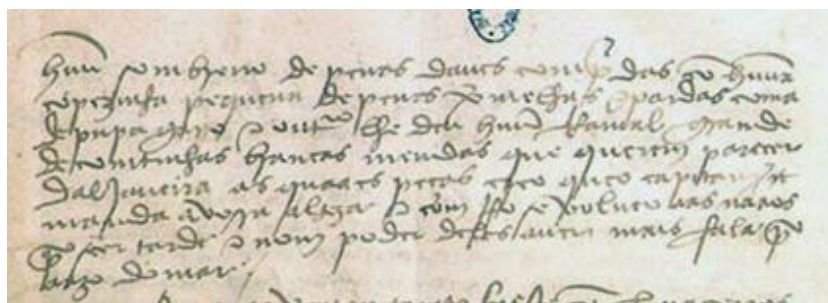 huũ sombreiro de penas daues compridas cõ huũa
copezinha pequena de penas vermelhas e pardas coma
de papagayo e outro lhe deu huũ rramal grande
de comtinhas brancas meudas que querem pareçer
daljaueira as quaaes peças creo que o capitam
manda a vossa alteza e com jsto se volueo aas naaos
por seer tarde e nom poder deles auer mais fala por
aazo do mar /